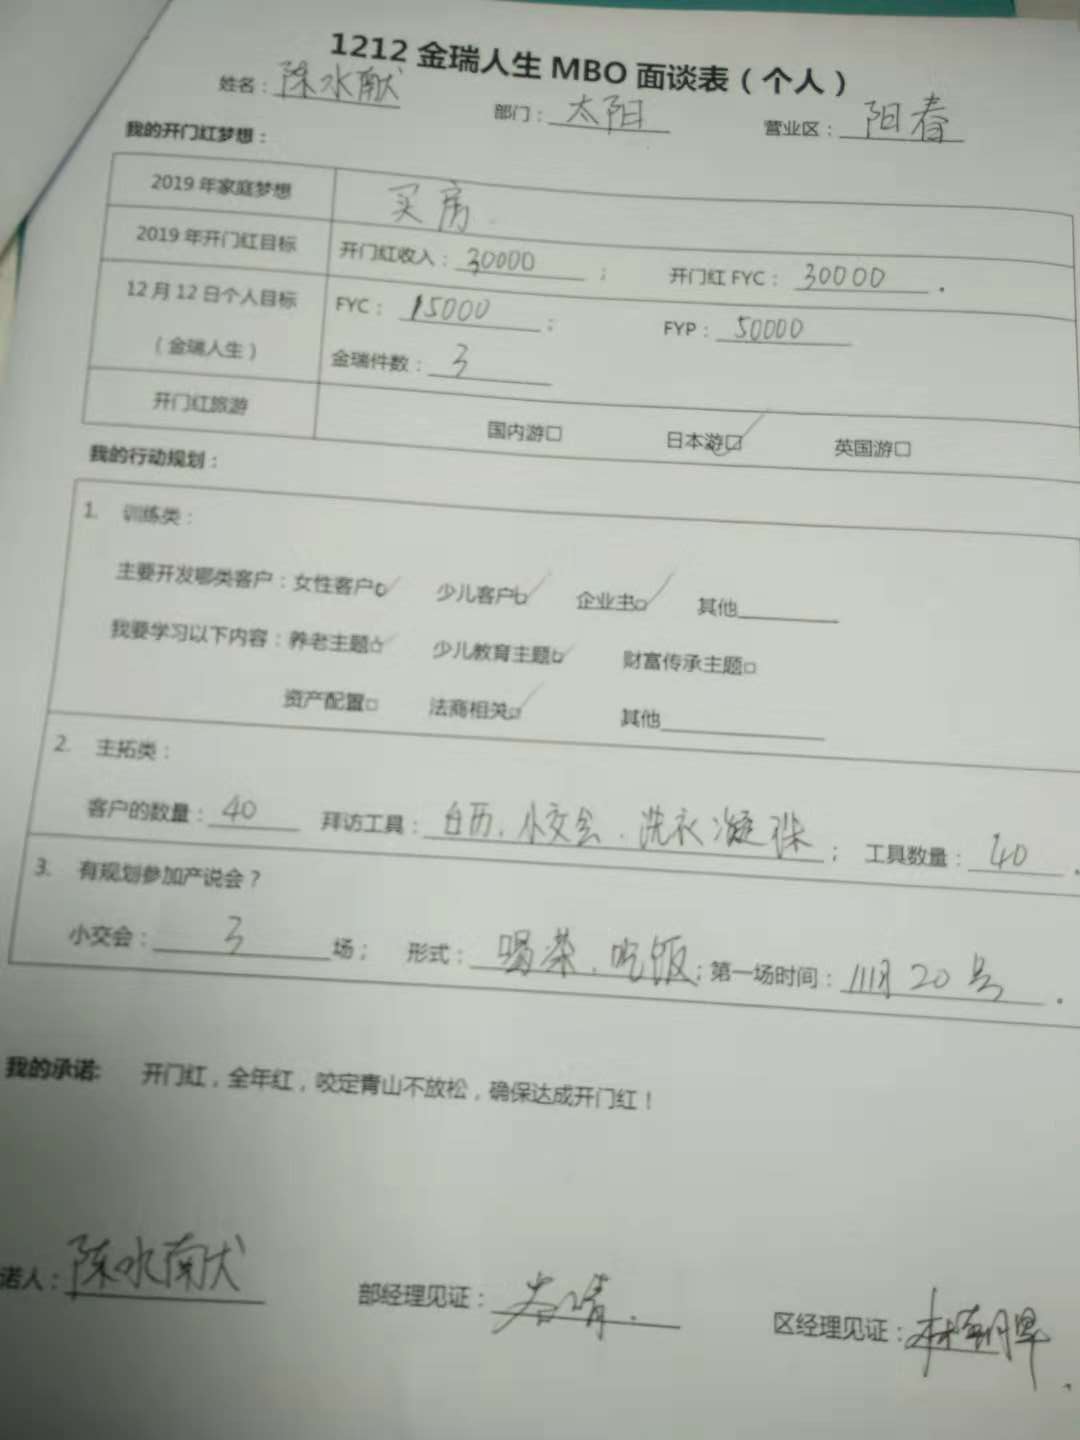 1212金瑞人生MBO面谈表（个人）
姓名：陈水献 部门：太阳 营业区：阳春
我的开门红梦想：
2019年家庭梦想 买房.
2019年开门红目标 开门红收入：30000； 开门红FYC：30000.
12月12日个人目标 FYC：15000； FYP：50000
（金瑞人生） 金瑞件数：3
开门红旅游 国内游□ 日本游☑ 英国游□
我的行动规划：
1. 训练类：
主要开发哪类客户：女性客户☑ 少儿客户☑ 企业主☑ 其他
我要学习以下内容：养老主题☑ 少儿教育主题☑ 财富传承主题□
资产配置□ 法商相关☑ 其他
2. 主拓类：
客户的数量：40 拜访工具：台历、小交会、洗衣凝珠； 工具数量：40.
3. 有规划参加产说会？
小交会：3场； 形式：喝茶、吃饭；第一场时间：11月20号.
我的承诺: 开门红，全年红，咬定青山不放松，确保达成开门红！
诺人：陈水献 部经理见证： 区经理见证：